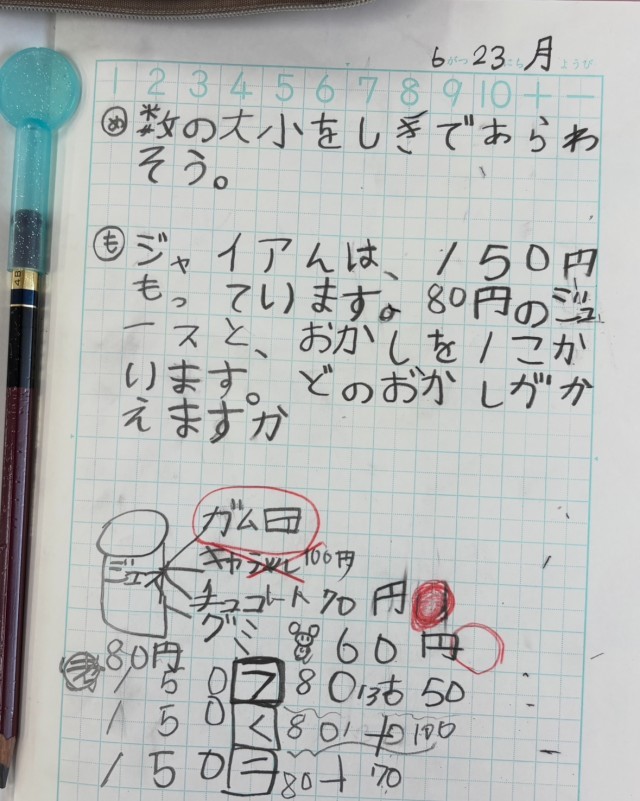 6がつ23にち月ようび
1 2 3 4 5 6 7 8 9 10 + −
め 数の大小をしきであらわ
そう。
も ジャイアんは、150円
もっています。80円のジュ
ースと、おかしを1こか
います。どのおかしがか
えますか
ガム
キャラメル 100円
ジュース
チョコレート 70円
グミ 60円
80円
150 > 80 50
150 < 80 + 100
150 = 80 + 70